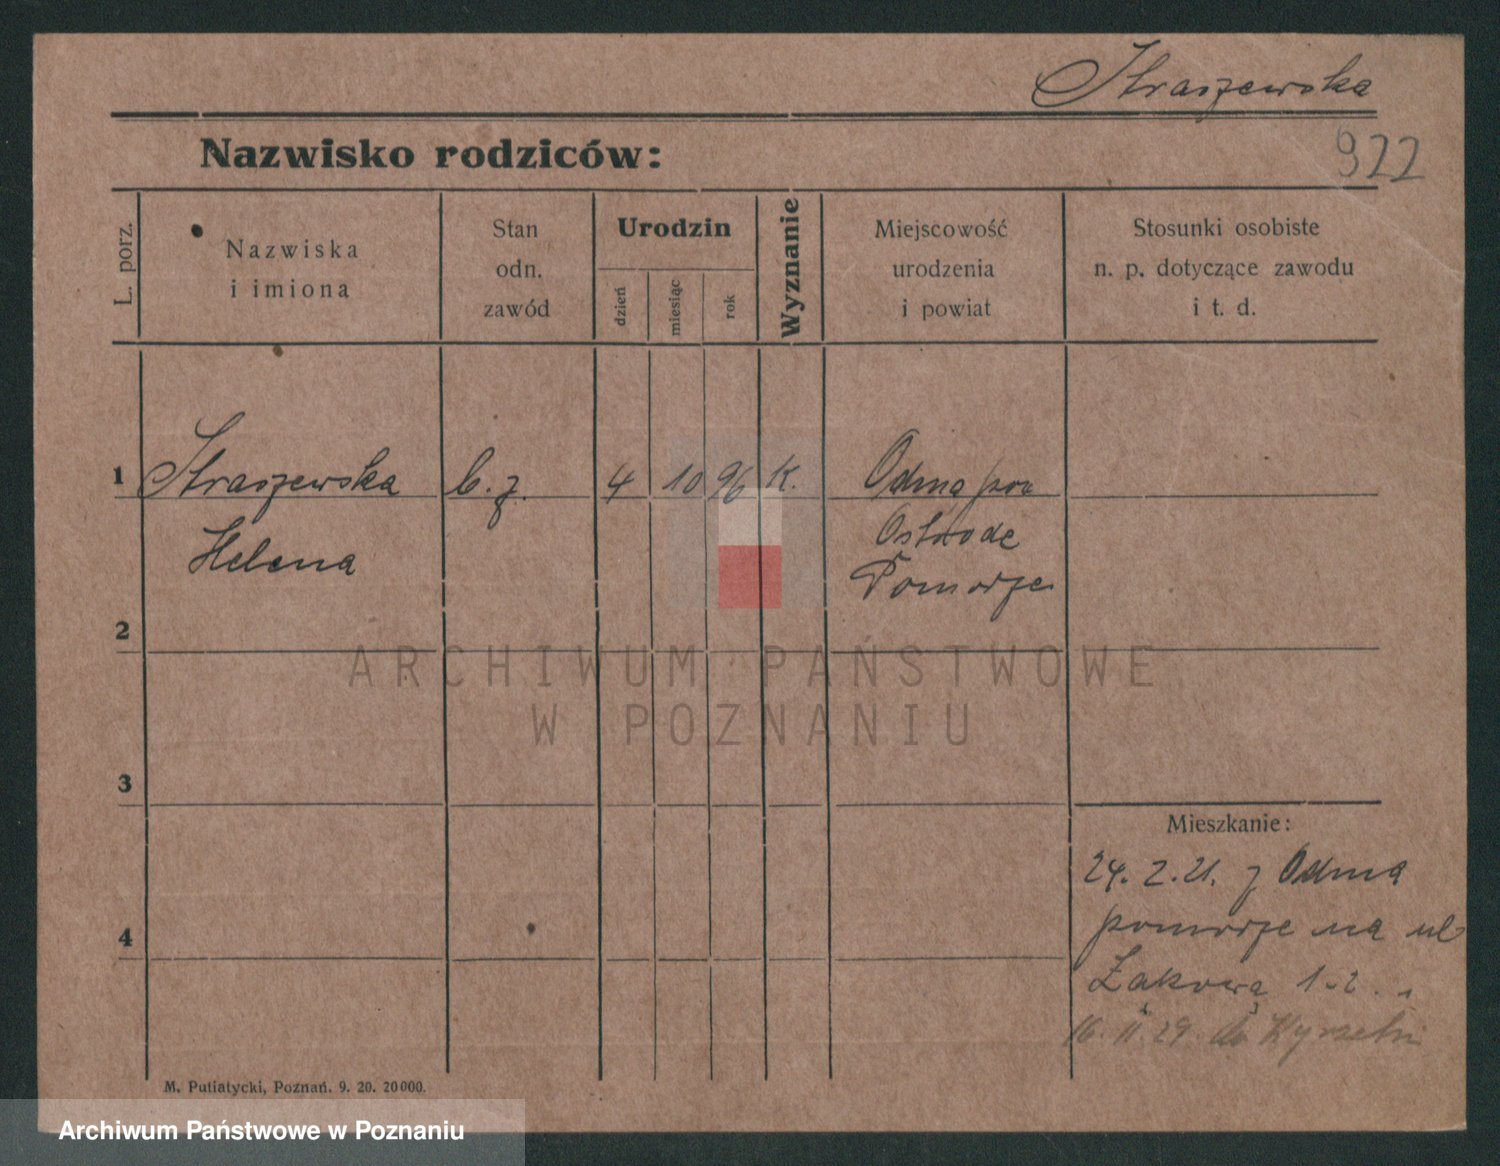 Straszewska
922
Nazwisko rodziców:
L. porz.
Nazwiska
i imiona
Stan
odn.
zawód
Urodzin
dzień
miesiąc
rok
Wyznanie
Miejscowość
urodzenia
i powiat
Stosunki osobiste
n. p. dotyczące zawodu
i t. d.
1 Straszewska b. z. 4 10 96 K. Odma pow
Helena Ostrode
Pomorze
2
ARCHIWUM PAŃSTWOWE
W POZNANIU
3
Mieszkanie:
24. 2. 21. z Odma
4 pomorze na ul
Łąkową 1-2.
16. 11. 29. do
M. Putiatycki, Poznań. 9. 20. 20000.
Archiwum Państwowe w Poznaniu